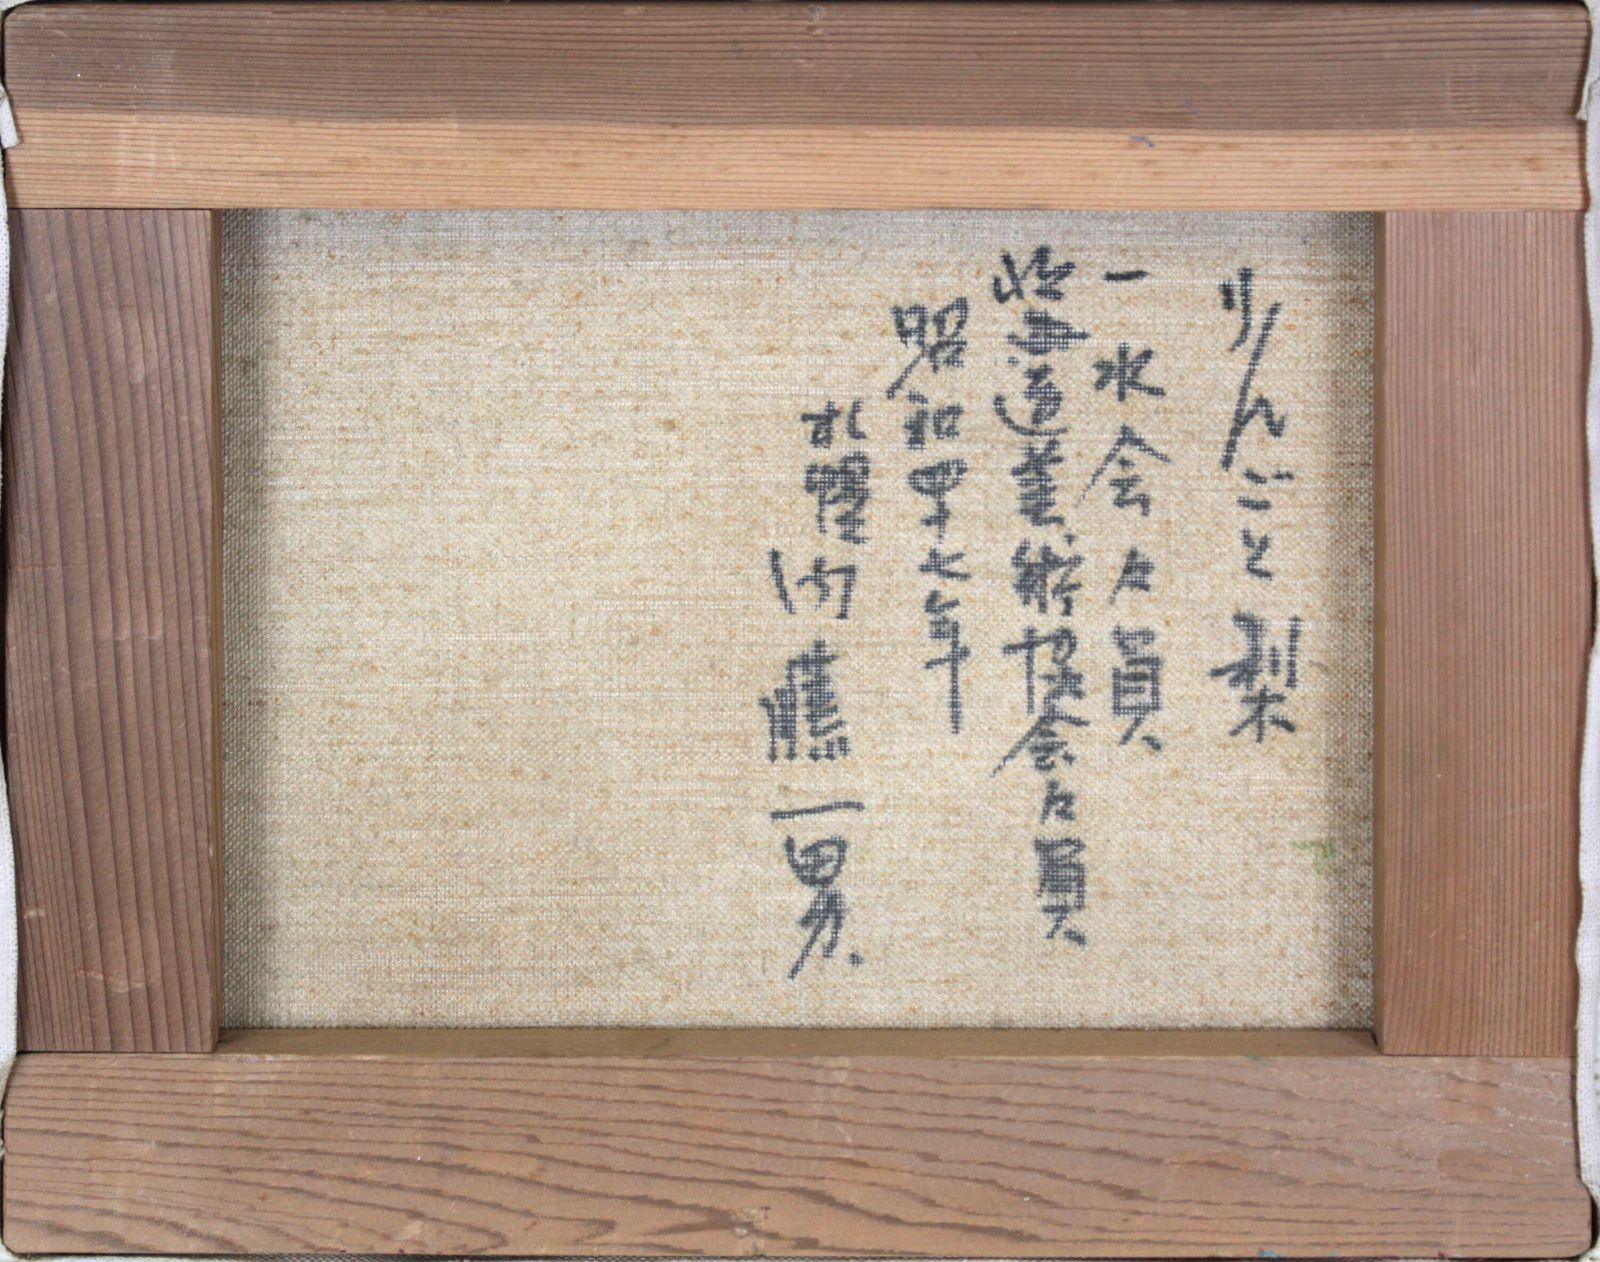 りんごと梨
一水会々員
北海道美術協会々員
昭和四十七年
札幌 内藤一男